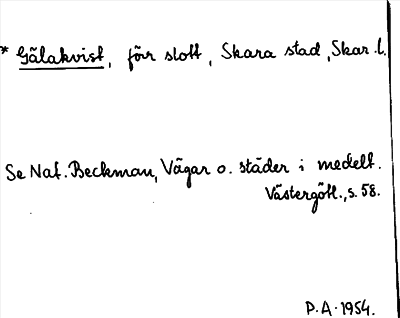 * Gälakvist, förr slott, Skara stad, Skar. l.
Se Nat. Beckman, Vägar o. städer i medelt.
Västergötl., s. 58.
P. A. 1954.